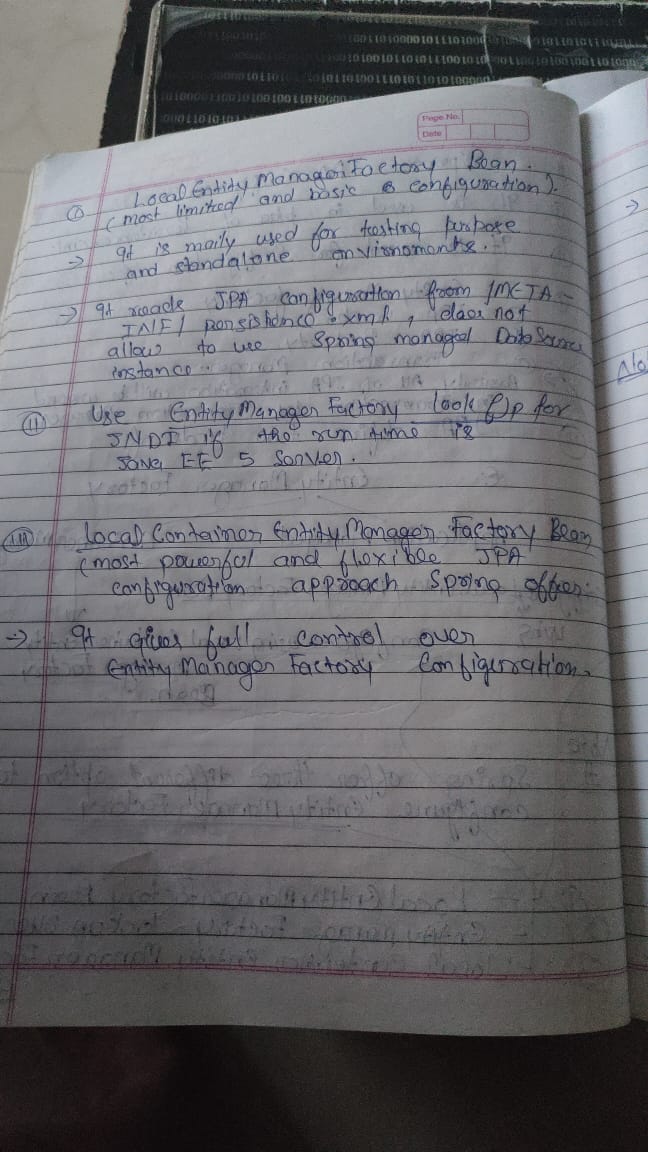 Page No.
Date
① Local Entity Manager Factory Bean.
(most limited and basic configuration).
→ It is maily used for testing purpose
and standalone environments.
→ It reads JPA configuration from /META-
INF/ persistence.xml, does not
allow to use Spring managed DataSource
instance
ⅱ Use Entity Manager Factory look Up for
JNDI if the run time is
Java EE 5 Server.
ⅲ Local Container Entity Manager Factory Bean
(most powerful and flexible JPA
configuration approach Spring offer.
→ It Gives full control over
Entity Manager Factory Configuration.